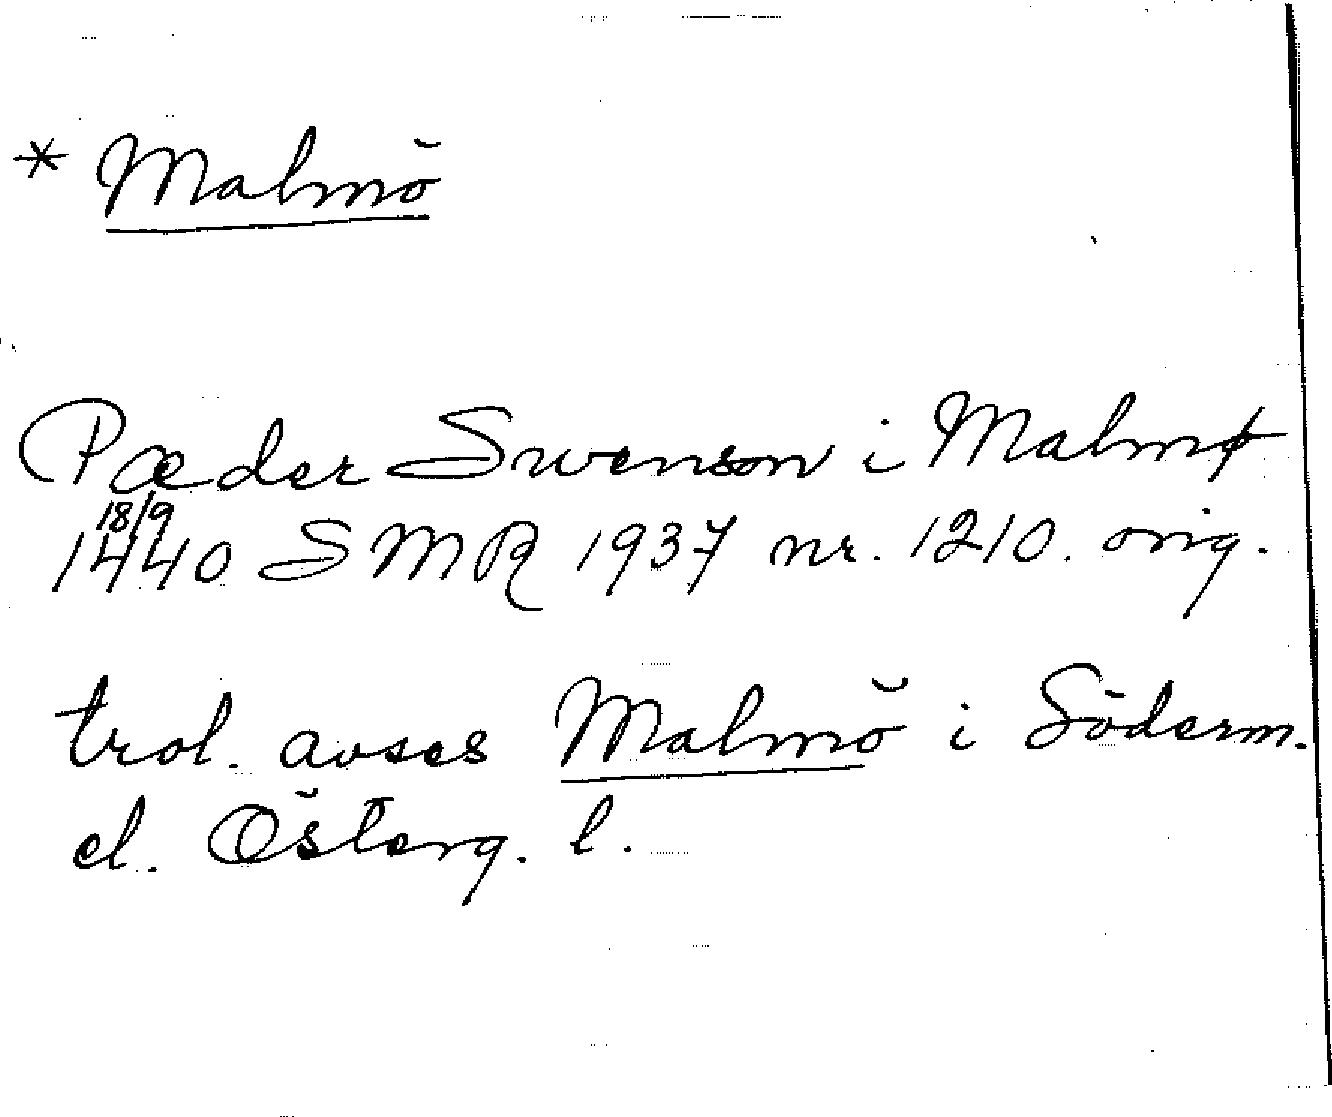 * Malmö
Pæder Swenson i Malmø
18/9
1440 SMR 1937 nr. 1210. orig.
trol. avses Malmö i Söderm.
el. Österg. l.